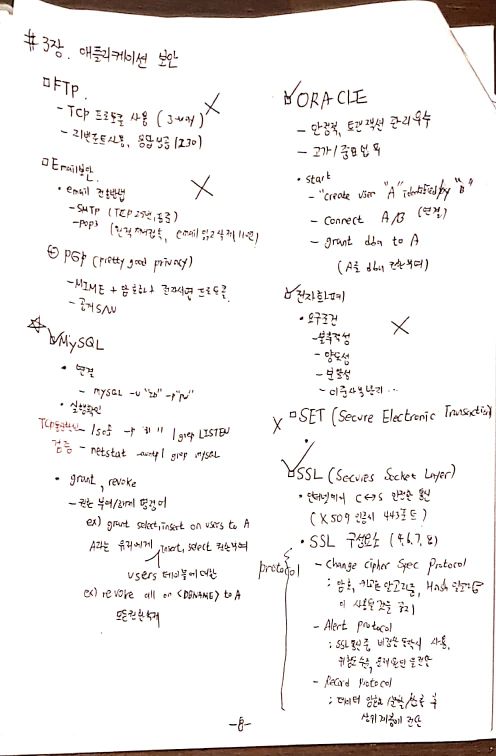 #3장. 애플리케이션 보안
FTP.
- TCP 프로토콜 사용 (3-way)
- 리번포트사용, 응답
Email보안.
• email 전송방법
- SMTP (TCP 25번,
- POP3 (원격 email 읽고 삭제
PGP (pretty good privacy)
- MIME + 암호화 + 전자서명 프로토콜.
- 공개 S/W
MySQL
• 연결
- mysql -u "ID" -p "pw"
• 실행확인
TCP - lsof -i | grep LISTEN
검증 - netstat -antp | grep mysql
• grant, revoke
- 권한 부여/해제 명령어
ex) grant select, insert on users to A
A라는 유저에게 insert, select 권한부여
users 테이블에 대한
ex) revoke all on <DBNAME> to A
모든권한삭제
ORACLE
- 안정적, 트랜잭션 관리 우수
- 고가 /
• start
- "create user "A" identified by "B"
- Connect A/B (연결)
- grant dba to A
(A로 dba 권한부여)
전자화폐
• 요구조건
- 불추적성
- 양도성
- 분할성
- 이중사용방지...
SET (Secure Electronic Transaction)
SSL (Secures Socket Layer)
• 인터넷에서 C↔S 안전한 통신
(X.509 인증서 443포트)
• SSL 구성요소 (4,6,7,8)
protocol
- Change cipher Spec Protocol
: 암호, 알고리즘, Hash 알고리즘
이 사용될것을 공지
- Alert protocol
: SSL통신중, 사용.
위험도수준,
- Record protocol
: 데이터 암호화 후
상위계층에 전달
-8-